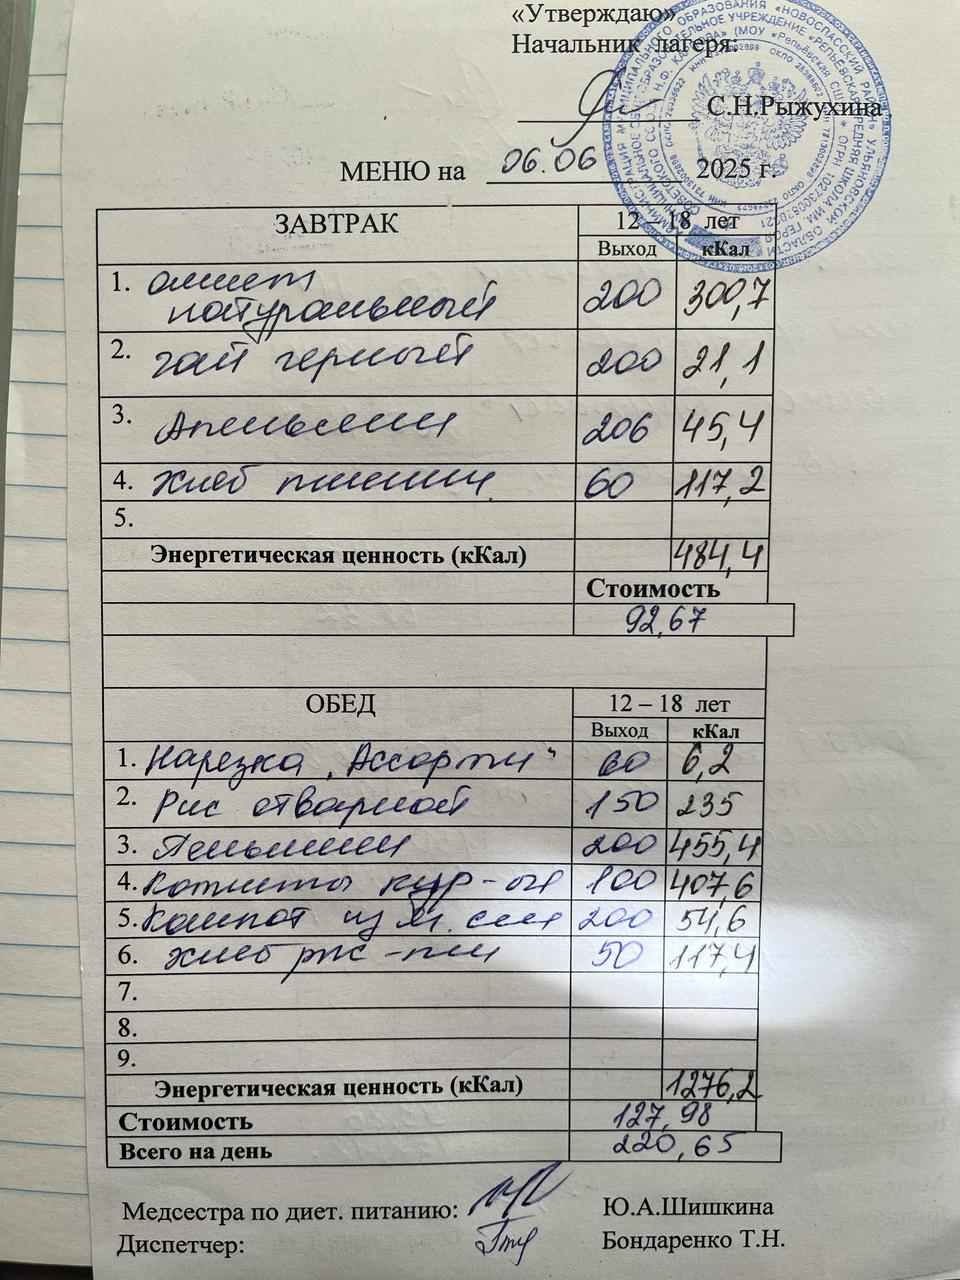 «Утверждаю»
Начальник лагеря:
С.Н.Рыжухина
МЕНЮ на 06.06 2025 г.
ЗАВТРАК 12 – 18 лет
Выход кКал
1. омлет натуральный 200 300,7
2. чай черный 200 21,1
3. Апельсин 206 45,4
4. хлеб пшенич. 60 117,2
5.
Энергетическая ценность (кКал) 484,4
Стоимость
92,67
ОБЕД 12 – 18 лет
Выход кКал
1. Нарезка „Ассорти“ 60 6,2
2. Рис отварной 150 235
3. Пельмени 200 455,4
4. Котлеты кур-ые 100 407,6
5. Компот из 200 54,6
6. хлеб рж-пш 50 117,4
7.
8.
9.
Энергетическая ценность (кКал) 1276,2
Стоимость 127,98
Всего на день 220,65
Медсестра по диет. питанию: Ю.А.Шишкина
Диспетчер: Бондаренко Т.Н.